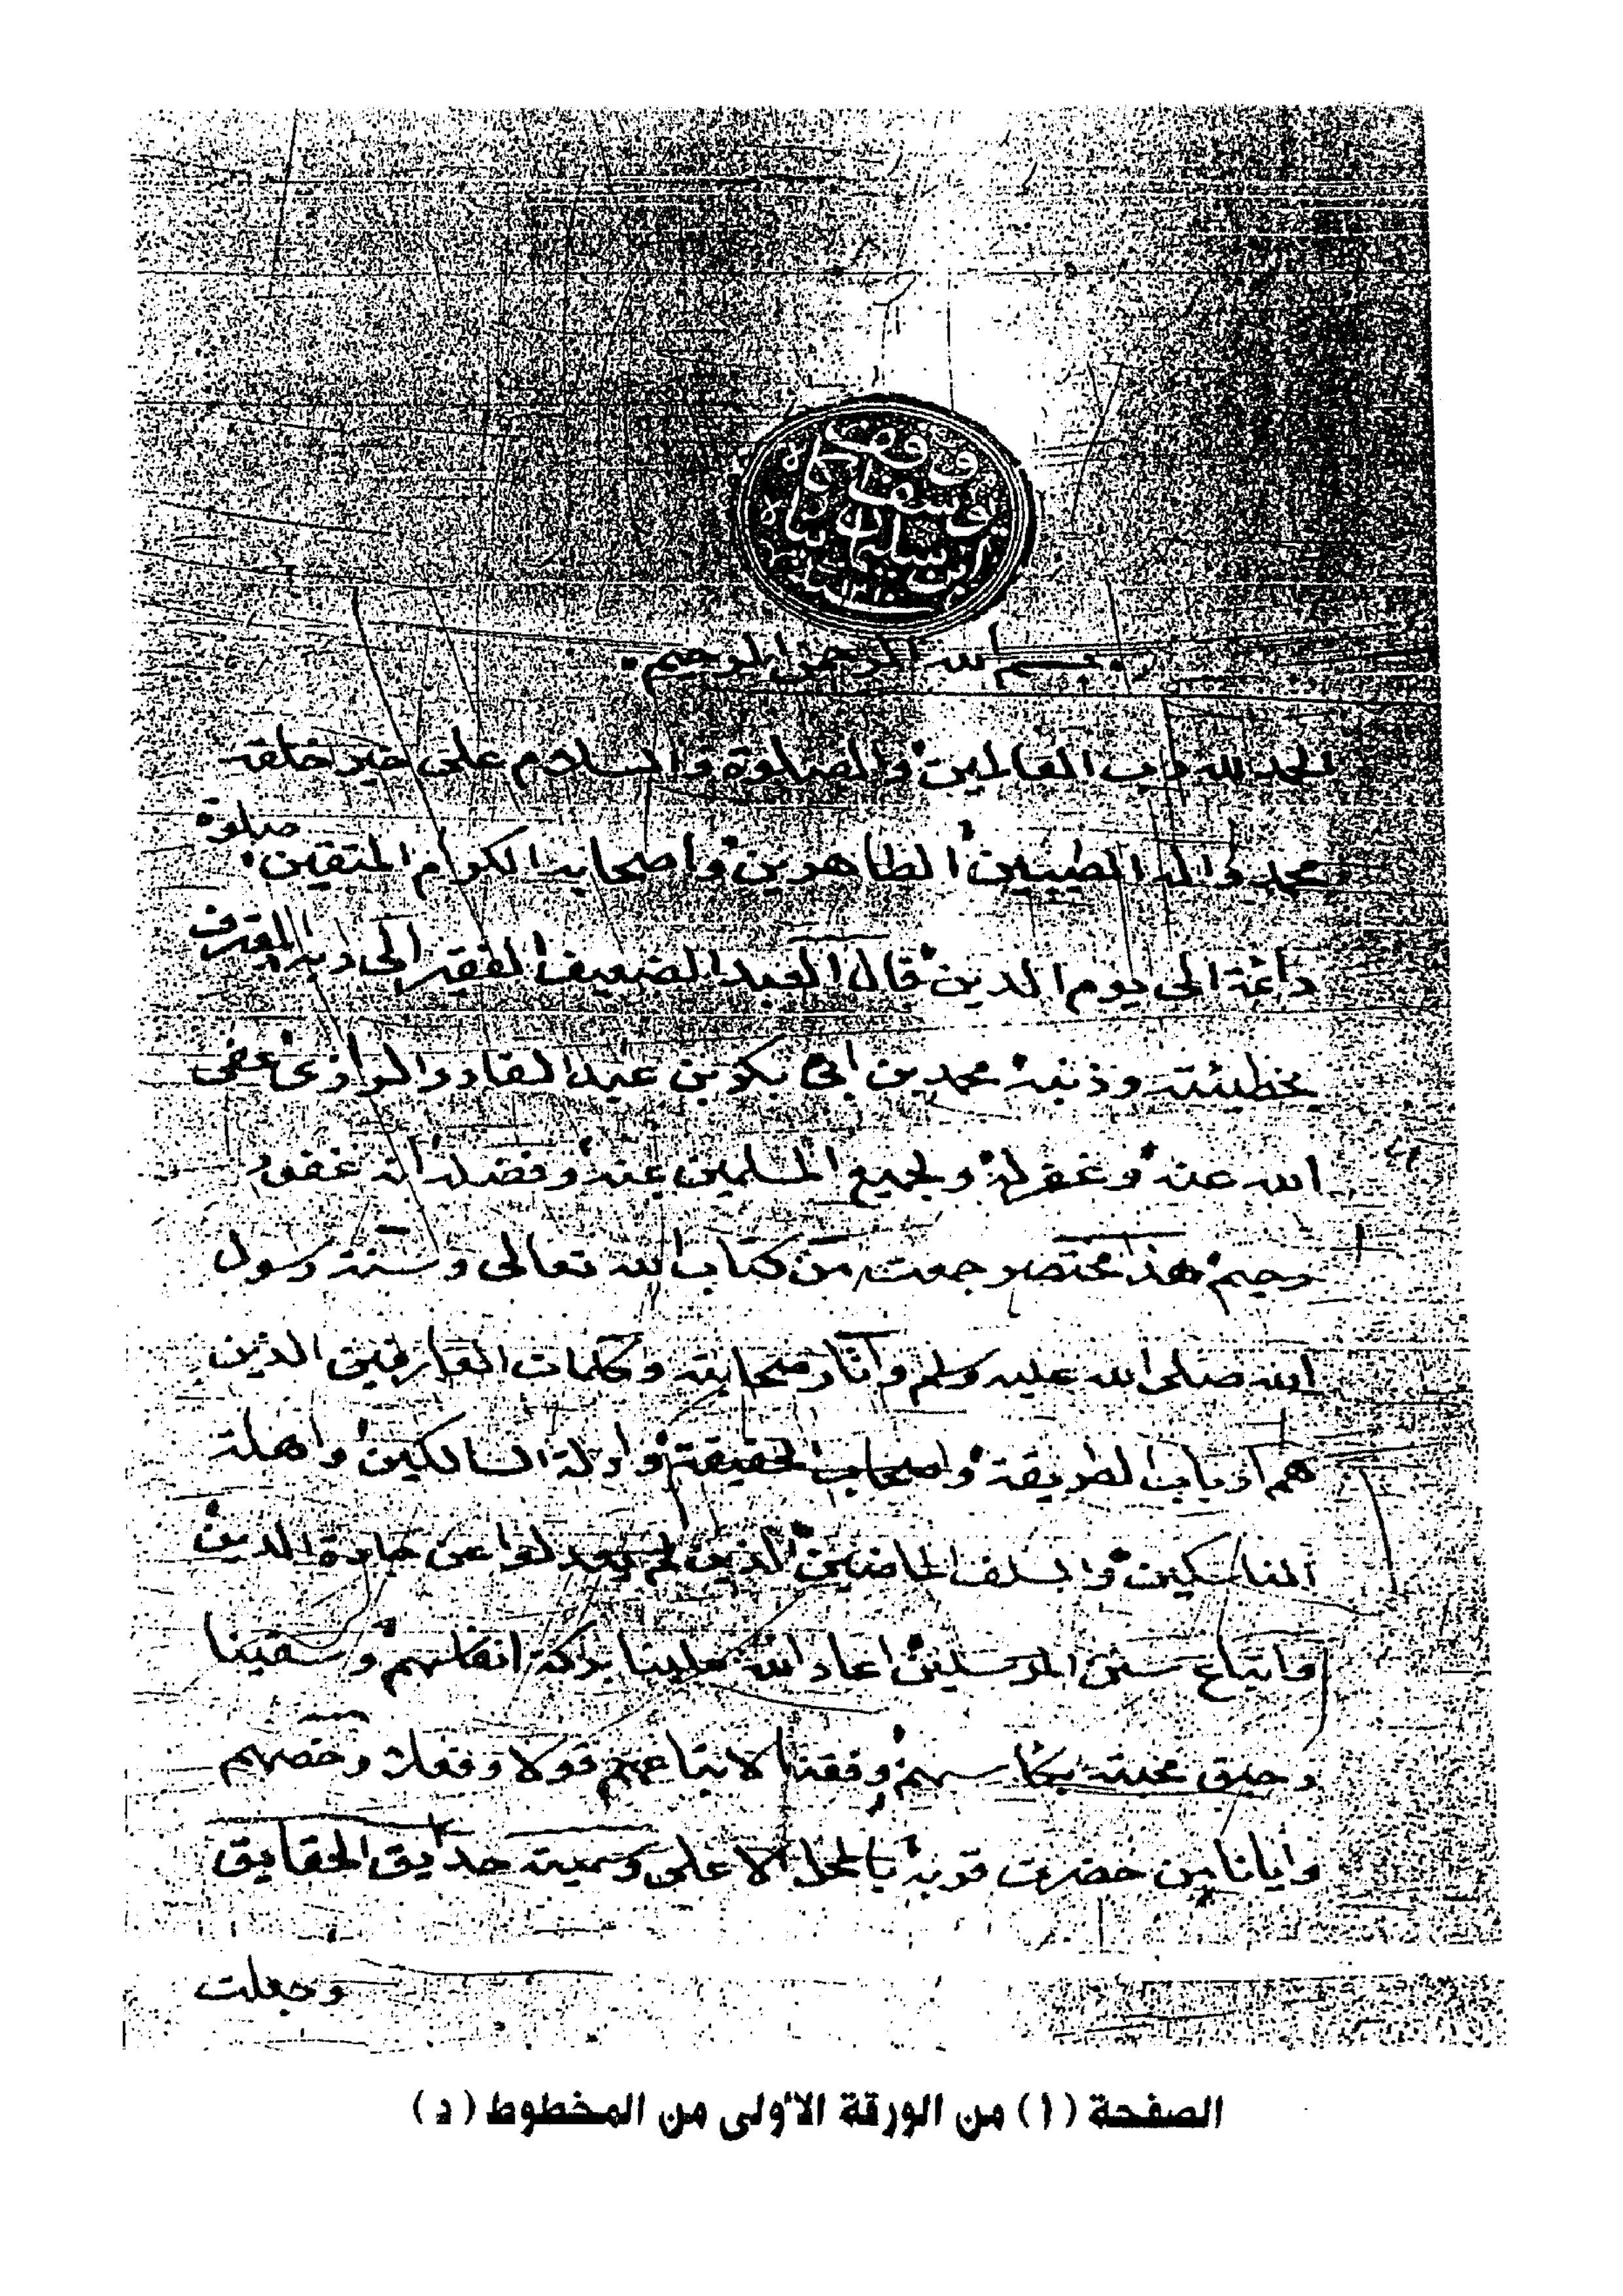 بسم الله الرحمن الرحيم
الحمد لله رب العالمين والصلوة والسلام على خير خلقه
محمد واله الطيبين الطاهرين واصحابه الكرام المتقين صلوة
دائمة الى يوم الدين قال العبد الضعيف الفقير الى ربه المعترف
بخطيئته وذنبه محمد بن ابى بكر بن عبد القادر الرازى عفى
الله عنه وغفر له ولجميع المسلمين بمنه وفضله انه غفور
رحيم هذا مختصر جمعته من كتاب الله تعالى وسنة رسول
الله صلى الله عليه وسلم وآثار صحابته وكلمات العارفين الذين
هم ارباب الطريقة واصحاب الحقيقة وادلة السالكين واهلة
الناسكين والسلف الماضين الذين لم يعدلوا عن جادة الدين
واتباع سنن المرسلين اعاد الله علينا بركة انفاسهم وسقينا
رحيق محبته بكاسهم وفقنا لاتباعهم قولا وفعلا وخصهم
وايانا من حضرت قربه بالمحل الاعلى وسميته حدايق الحقايق
وجعلت
الصفحة (أ) من الورقة الأولى من المخطوط (د)